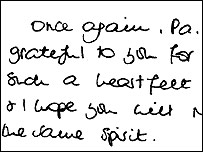 Once again, Pa.
grateful to you for
such a heartfelt
& I hope you will
the same spirit.